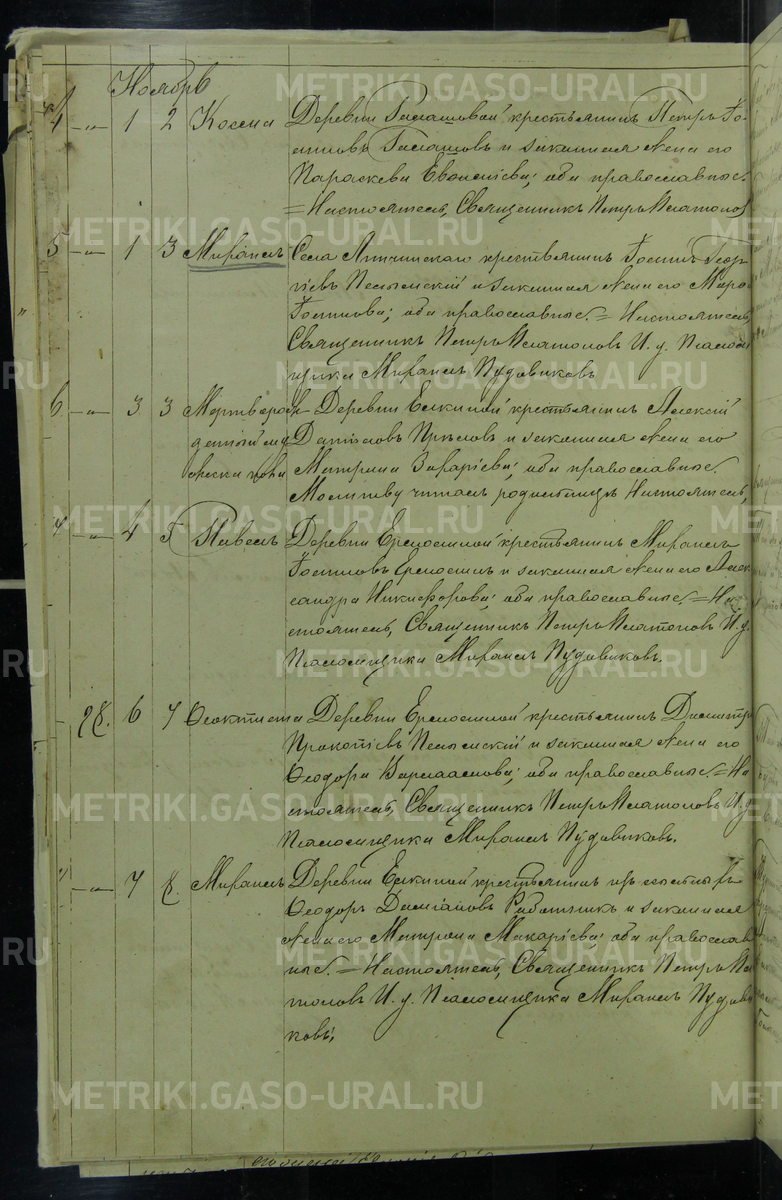 Ноябрь
4 —„— 1 2 Косма Деревни крестьянинъ Петръ Іо-
анновъ и законная жена его
Параскева оба православные.
= Настоятель, Священникъ Петръ Платоновъ
5 —„— 1 3 Михаилъ Села крестьянинъ Іоаннъ Геор-
гіевъ Пелымскій и законная жена его Марѳа
Іоаннова; оба православные = Настоятель,
Священникъ Петръ Платоновъ И. д. Псалом-
щика Михаилъ Пудовиковъ
6 —„— 3 3 Мертворож- Деревни Елкиной крестьянинъ Алексій
денный му- Даниловъ и законная жена его
жеска пола Матрона Захаріева; оба православные.
Молитву читалъ родильницѣ Настоятель,
7 —„— 4 5 Павелъ Деревни Ермошиной крестьянинъ Михаилъ
Іоанновъ Ермошинъ и законная жена его Алек-
сандра Никифорова; оба православные. = На-
стоятель, Священникъ Петръ Платоновъ И. д.
Псаломщика Михаилъ Пудовиковъ.
28. 6 7 Ѳеоктиста Деревни Ермошиной крестьянинъ Димитрій
Прокопіевъ Пелымскій и законная жена его
Ѳеодора Варлаамова; оба православные. = На-
стоятель, Священникъ Петръ Платоновъ И. д.
Псаломщика Михаилъ Пудовиковъ.
„ —„— 7 8. Михаилъ Деревни Елкиной крестьянинъ
Ѳеодоръ Даміановъ и законная
жена его Матрона Макаріева; оба православ-
ные. = Настоятель, Священникъ Петръ Пла-
тоновъ И. д. Псаломщика Михаилъ Пудови-
ковъ.
METRIKI.GASO-URAL.RU